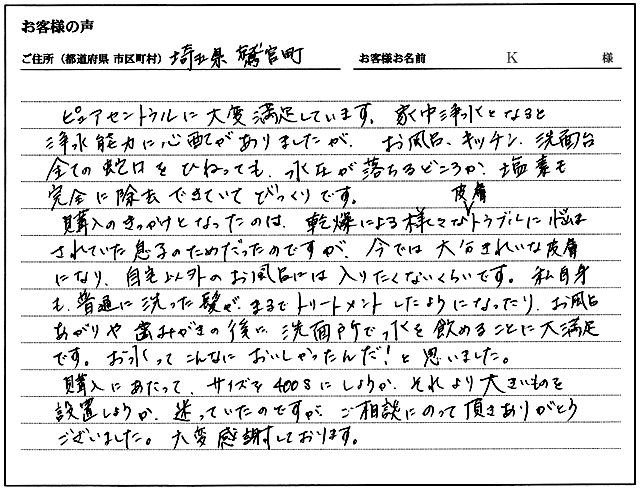 お客様の声
ご住所（都道府県 市区町村） 埼玉県 鷲宮町 お客様お名前 K 様
ピュアセントラルに大変満足しています。家中浄水となると
浄水能力に心配がありましたが、お風呂、キッチン、洗面台
全ての蛇口をひねっても、水圧が落ちるどころか、塩素も
完全に除去できていてびっくりです。
購入のきっかけとなったのは、乾燥による様々な皮膚トラブルに悩ま
されていた息子のためだったのですが、今では大分きれいな皮膚
になり、自宅以外のお風呂には入りたくないくらいです。私自身
も、普通に洗った髪が、まるでトリートメントしたようになったり、お風呂
あがりや歯みがきの後に、洗面所で水を飲めることに大満足
です。お水ってこんなにおいしかったんだ！と思いました。
購入にあたって、サイズを400Sにしようか、それより大きいものを
設置しようか、迷っていたのですが、ご相談にのって頂きありがとう
ございました。大変感謝しております。